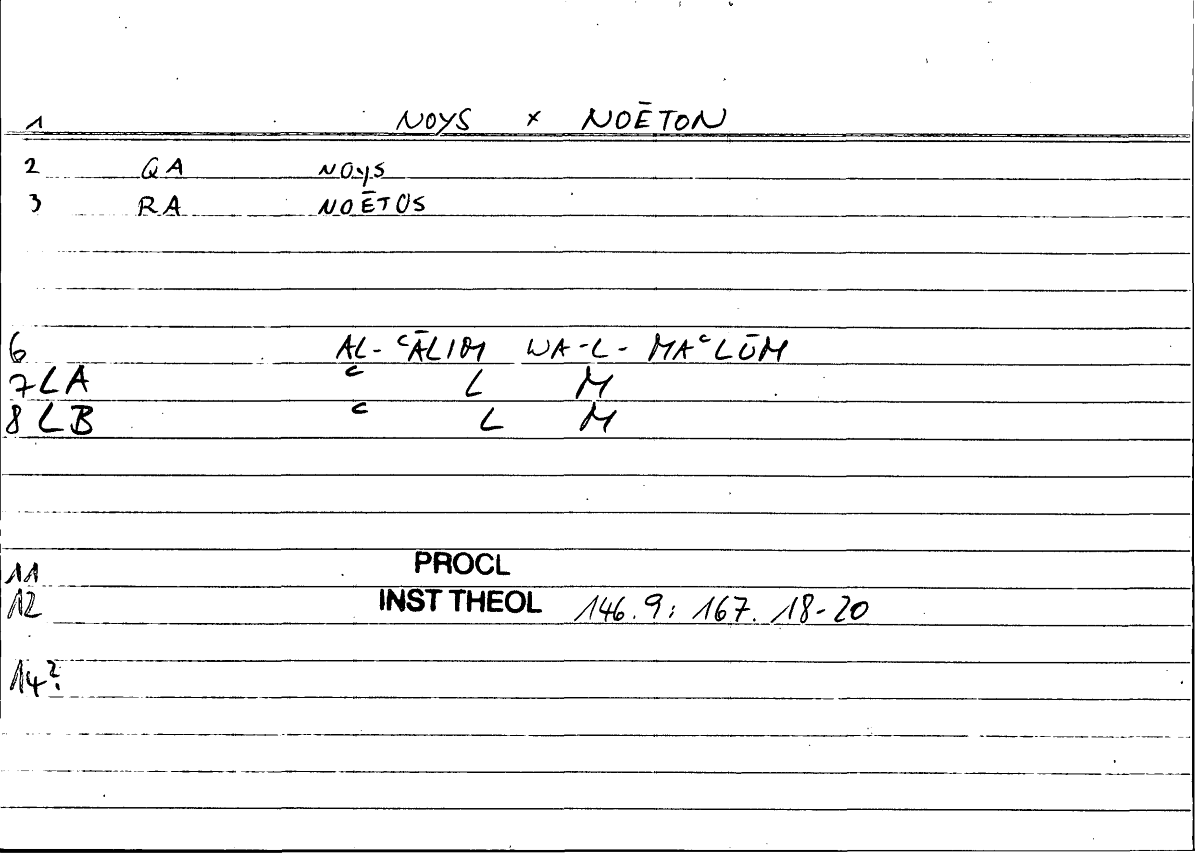 1 NOYS × NOĒTON
2 QA NOYS
3 RA NOĒTOS
6 AL-ᶜĀLIM WA-L-MAᶜLŪM
7 LA ᶜ L M
8 LB ᶜ L M
11 PROCL
12 INST THEOL 146.9: 167.18-20
14?